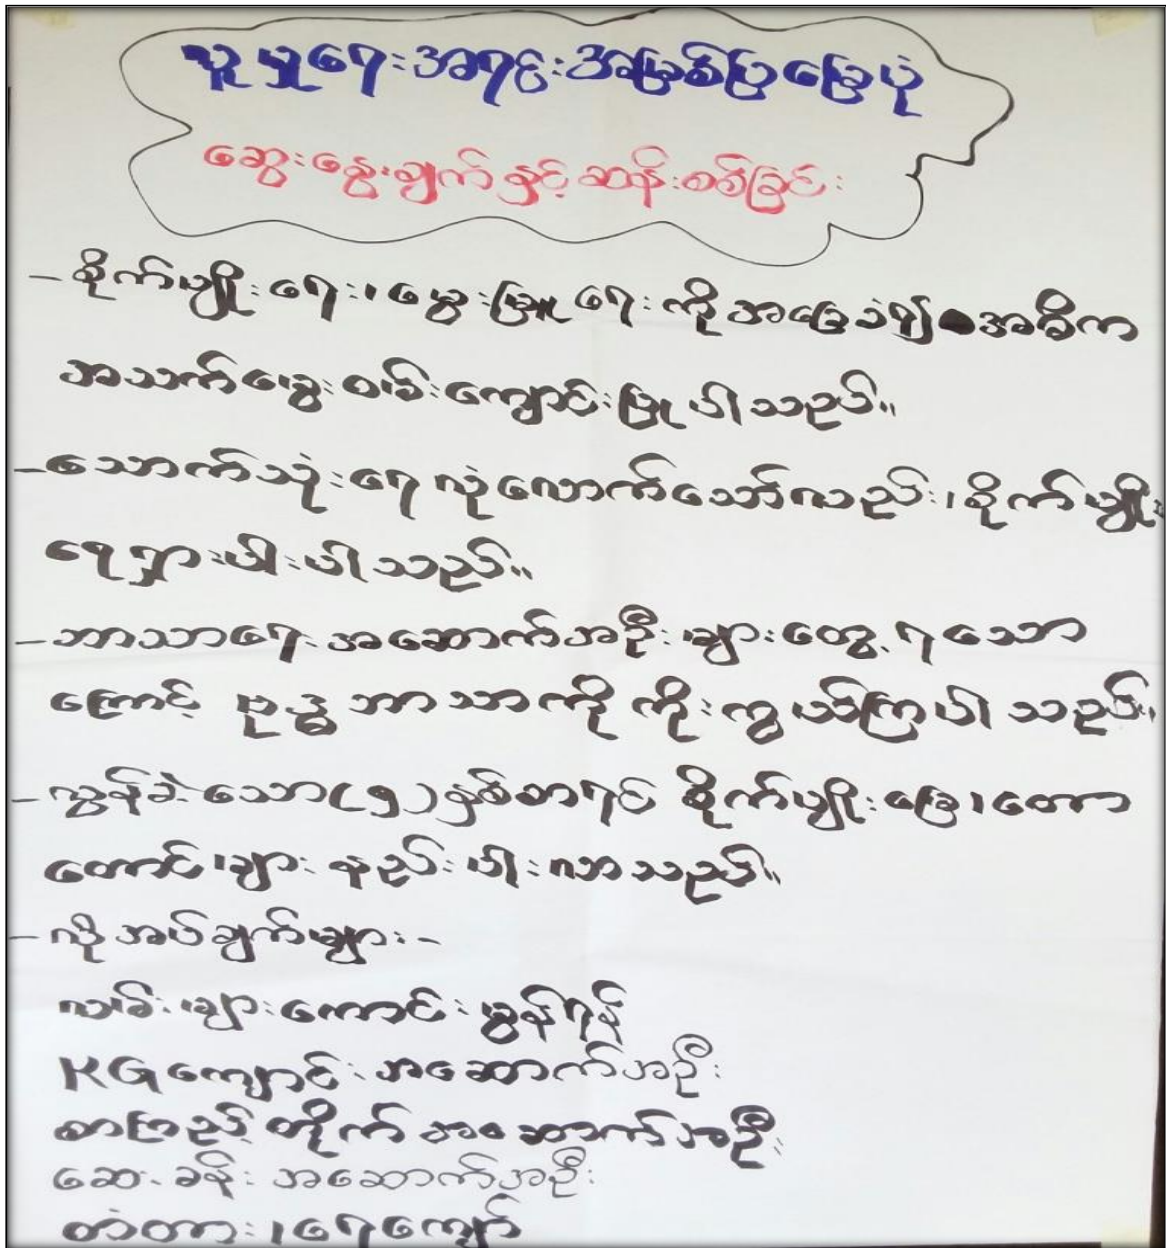 လူမှုရေးအရင်းအမြစ်ပြမြေပုံ
ဆွေးနွေးချက်နှင့်ဆန်းစစ်ခြင်း
- စိုက်ပျိုးရေး၊ မွေးမြူရေးကိုအခြေခံ၍အဓိက
အသက်မွေးဝမ်းကျောင်းပြုပါသည်။
- သောက်သုံးရေလုံလောက်သော်လည်း၊ စိုက်ပျိုး
ရေရှားပါးပါသည်။
- ဘာသာရေးအဆောက်အဦးများတွေ့ရသော
ကြောင့် ဗုဒ္ဓဘာသာကိုကိုးကွယ်ကြပါသည်။
- လွန်ခဲ့သော(၅)နှစ်စာရင် စိုက်ပျိုးမြေ၊ တော
တောင်များနည်းပါးလာသည်။
- လိုအပ်ချက်များ -
လမ်းများကောင်းမွန်ရန်
KGကျောင်းအဆောက်အဦး
စာကြည့်တိုက်အဆောက်အဦး
ဆေးခန်းအဆောက်အဦး
တံတား၊ ရေကျော်